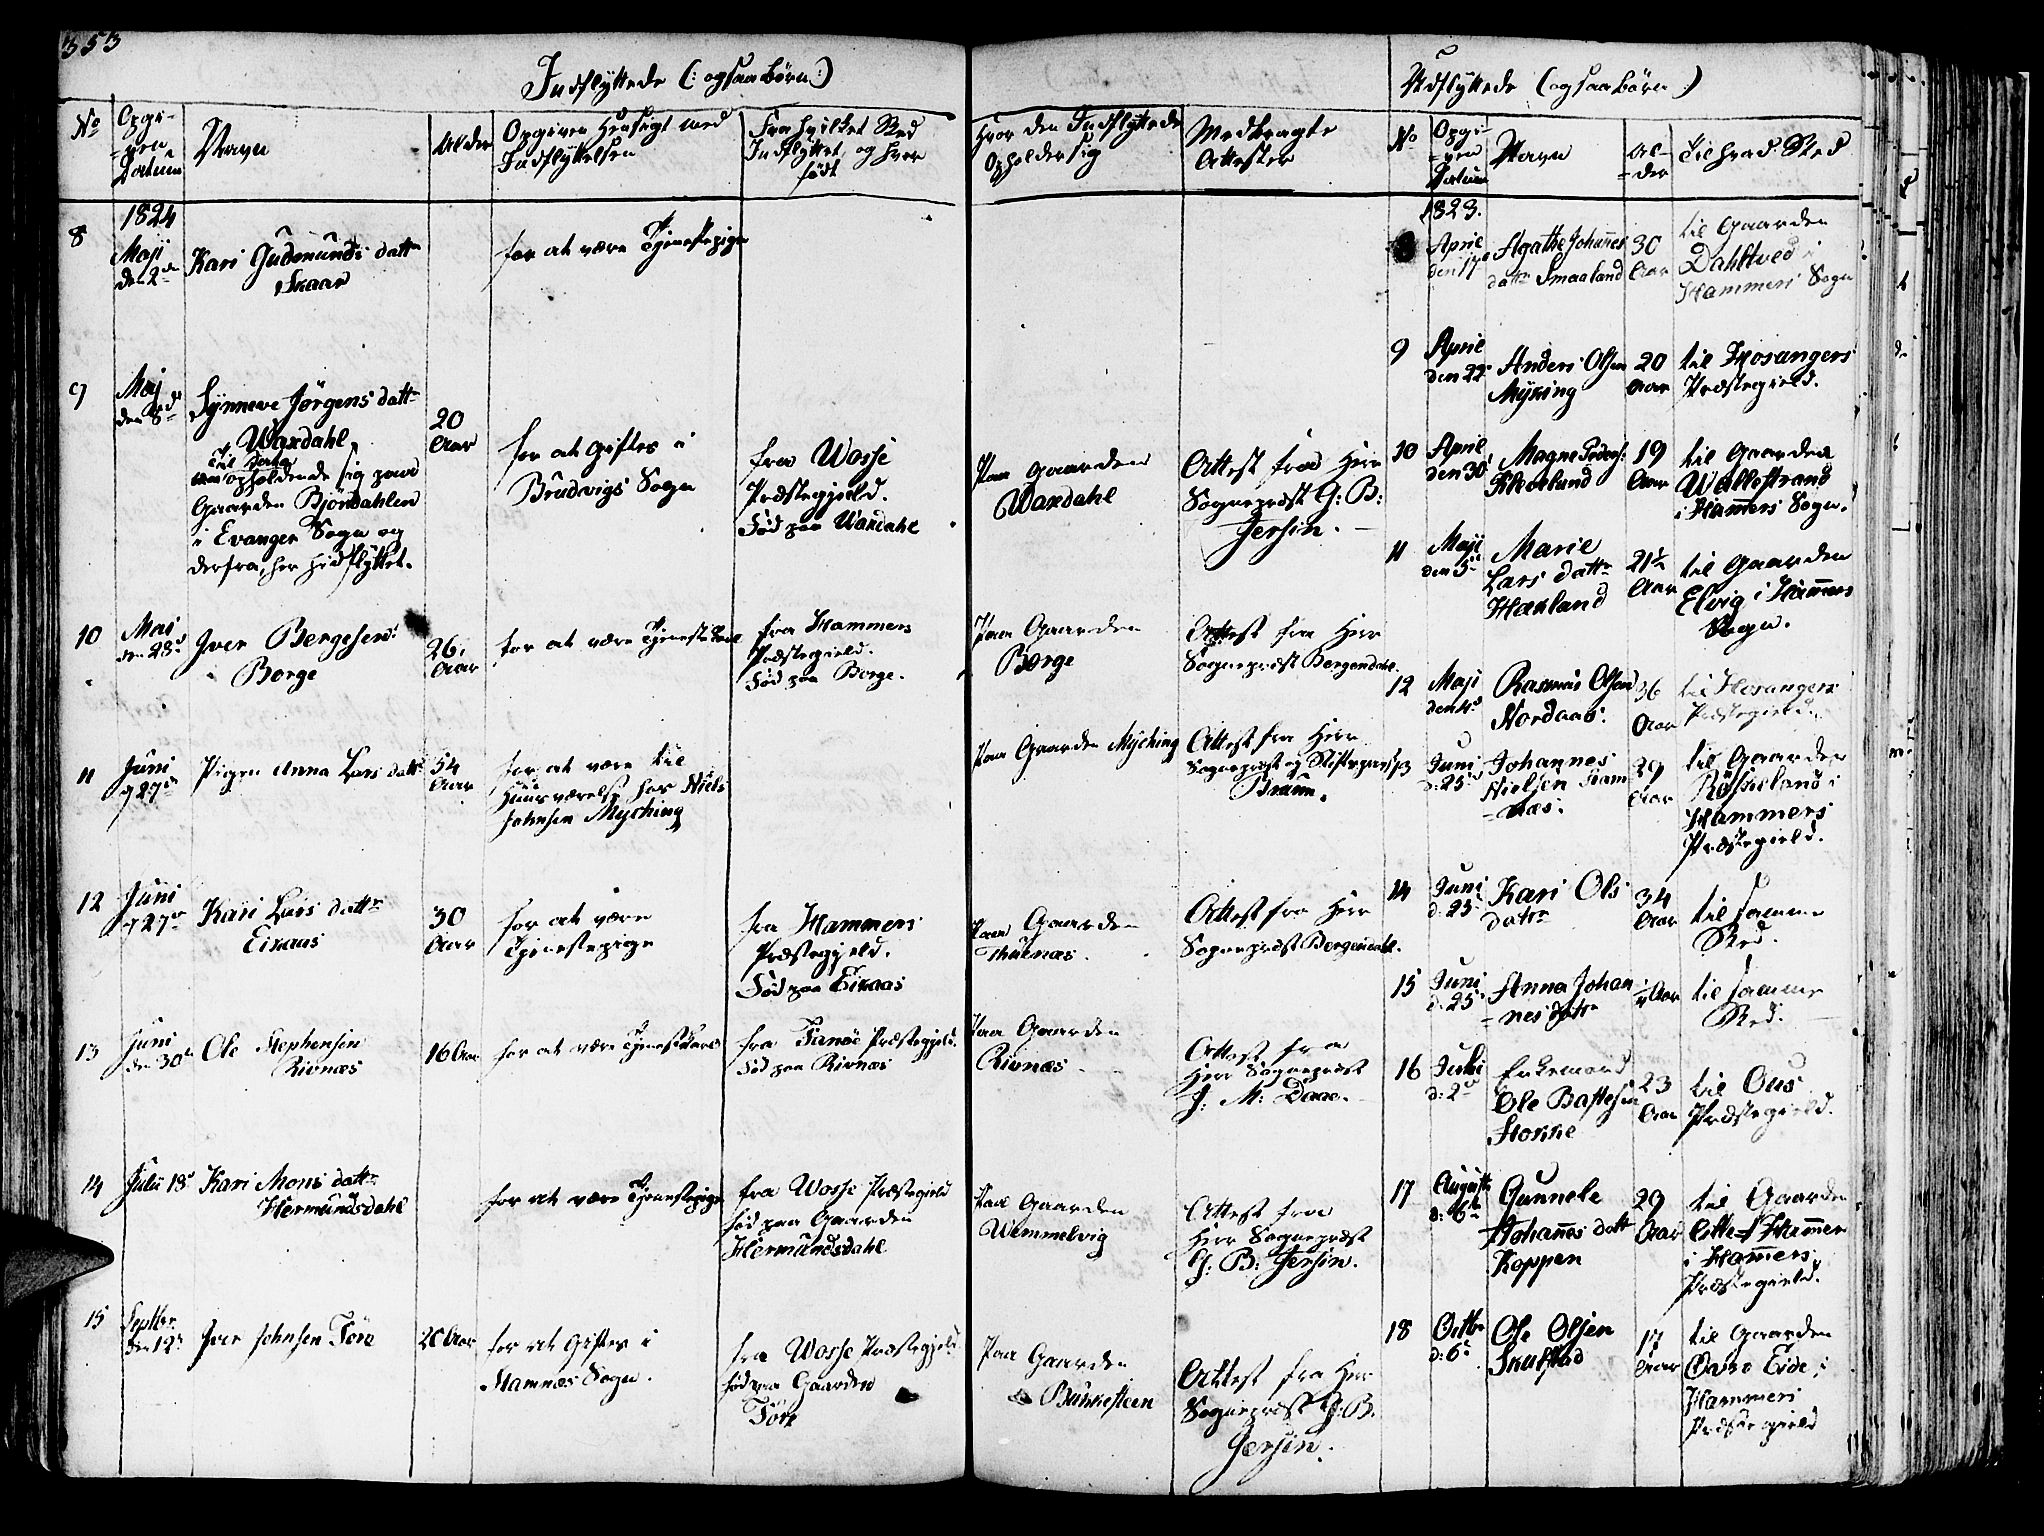 353
Indflyttede (: ogsaa børn :)
No
Opgi-
ven
Datum
Navn
Alder
Opgiven Hensigt med
Indflyttelsen
Fra hvilket Sted
Indflyttet og hvor
født
Hvor den Indflyttede
Opholder sig
Medbragte
Attester
8
1824
Maji
den 2den
Kari Gudmunds datter
Skaar
for at være Tjenestepige
9
Maj
den 8de
Synneve Jørgens datter
Waxdahl,
Til Dato
opholdende sig paa
Gaarden Bjørdahlen
i Evanger Sogn og
derfra, her hid flyttet.
20
Aar
for at giftes i
Brudvigs Sogn
fra Wosse
Præstegjeld.
Død paa Waxdahl
Paa gaarden
Waxdahl
Attest fra Herr
Sognepræst G: B:
Jersin.
10
Mai
den 28de
Iver Bergesen
Borge
26
Aar
for at være Tjeneste Karl
fra Hammers
Præstegield.
Fød paa Borge.
Paa Gaarden
Borge
Attest fra Herr
Sognepræst Bergendahl.
11
Juni
d 27de
Pigen Anna Lars datter
54
Aar
for at være til
Huusværelse hos Niels
Johnsen Myching
Paa Gaarden Myching
Attest fra Herr
Sognepræst og Stiftsprovst
Bruun.
12
Juni
d 27de
Kari Lars datter
Eixaas
30
Aar
for at være
Tjenestepige
fra Hammers
Præstegjeld.
Fød paa Eixaas
Paa Gaarden
Thunæs
Attest fra Herr
Sognepræst Bergendahl.
13
Juni
den 30te
Ole Stephensen
Rivnæs
16 Aar
for at være Tjenestekarl
fra Finnøe Præstegjeld.
Fød paa Rivnæs
Paa Gaarden
Rivnæs
Attest fra
Herr Sognepræst
J. M: Daae.
14
Julii 18de
Kari Mons datter
Hermundsdahl
for at være Tjenestepige
fra Wosse Præstegield
fød paa Gaarden
Hermundsdahl
Paa Gaarden
Wemmelvig
Attest fra
Herr Sognepræst
G: B: Jersin.
15
Septbr.
den 12te
Iver Johnsen Føre
20 Aar
for at giftes i
Stamnæs Sogn.
fra Wosse Præstegjeld
fød paa Gaarden
Føre
Paa Gaarden
Bukkesteen
Attest fra Herr
Sognepræst G: B.
Jersin.
Udflyttede (ogsaa børn :)
No
Opgi-
ven
Datum
Navn
Al-
der
Til hvad Sted
1823.
April
den 17de
Agathe Johannes
datter Smaaland
30
Aar
til Gaarden
Dahltved i
Hammers Sogn
9
April
den 22de
Anders Olsen
Myking
20
Aar
til Hosangers
Præstegield.
10
April
den 30te
Magne Peders:
Kleveland
19
Aar
til Gaarden
Wallestrand
i Hamers Sogn.
11
Maji
den 5te
Marie
Lars datter
Haxland
21½
Aar
til Gaarden
Elvig i Hamers
Sogn.
12
Maji
den 4de
Rasmus Olsen
Nordaas.
36
Aar
til Hosangers
Præstegield.
13
Juni
d: 25de
Johannes
Nielsen Ram
-næs.
29
Aar
til Gaarden
Røskeland i
Hammers
Præstegield.
14
Juni
d: 25de
Kari Ols
datter
34
Aar
til samme
Sted.
15
Juni
d: 25de
Anna Johan
-nes datter
Aar
til samme
Sted.
16
Julii
d: 2den
Enkemand
Ole Baftesen
Storke
23
Aar
til Ous
Præstegield.
17
August
d: 6te
Gunnele
Johannes datter
Koppen
29
Aar
til Gaarden
Hammer
i Hamers
Præstegield.
18
Octbr
d: 6te
Ole Olsen
Skulstad
17
Aar
til Gaarden
Øvre Eide i
Hammers
Præstegield